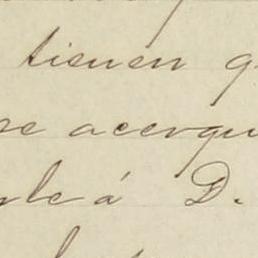 tienen q
se acerqu
le á D.